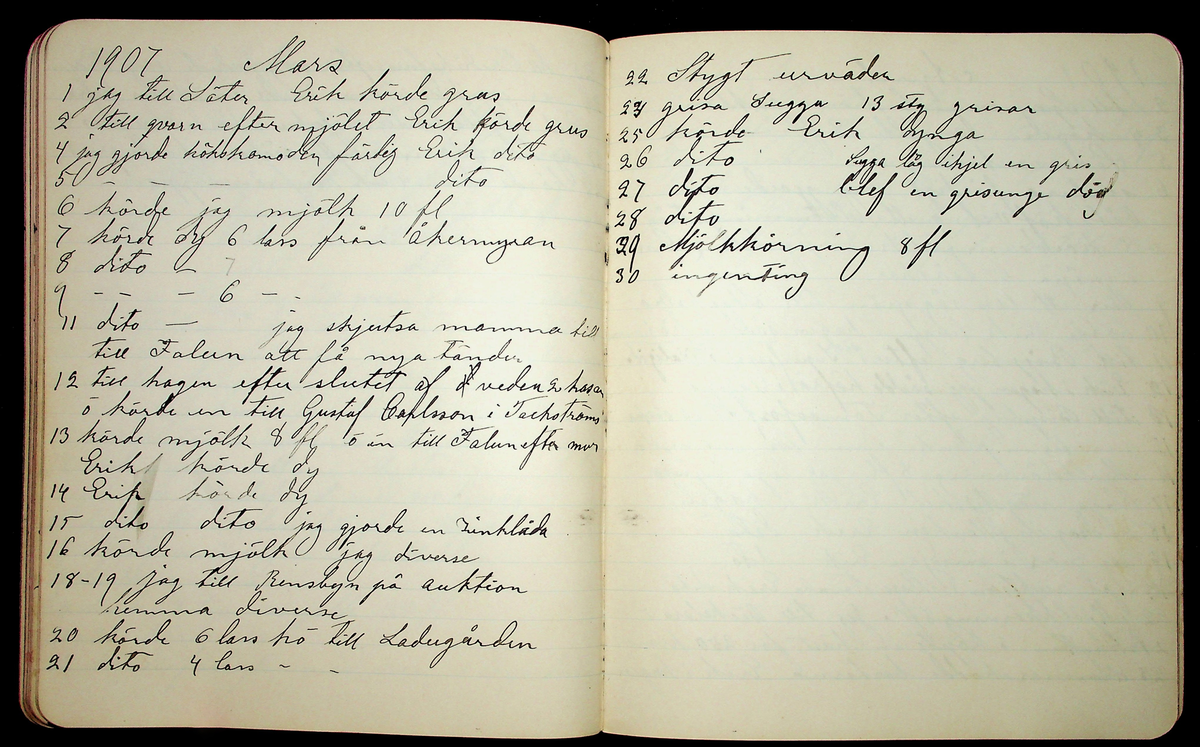 1907 Mars
1 jag till Säter Erik körde grus
2 till qvarn efter mjölet Erik körde grus
4 jag gjorde kökskomoden färdig Erik dito
5 - - - dito
6 körde jag mjölk 10 fl
7 körde dy 6 lars från Åkermyran
8 dito - 7
9 - - - 6 - -
11 dito - jag skjutsa mamma till
till Falun att få nya tänder
12 till hagen efter slutet af veden 2 kasar
ö körde en till Gustaf Carlsson i Tackströms
13 körde mjölk 8 fl ö in till Falun efter mor
Erik körde dy
14 Erik körde dy
15 dito dito jag gjorde en Zinklåda
16 körde mjölk jag diverse
18-19 jag till Rensbyn på auktion
hemma diverse
20 körde 6 lars hö till Ladugården
21 dito 4 lars - -
22 Stygt urväder
23 grisa Sugga 13 sty grisar
25 körde Erik dynga
26 dito Sugga låg ihjel en gris
27 dito blef en grisunge död
28 dito
29 Mjölkkörning 8 fl
30 ingenting